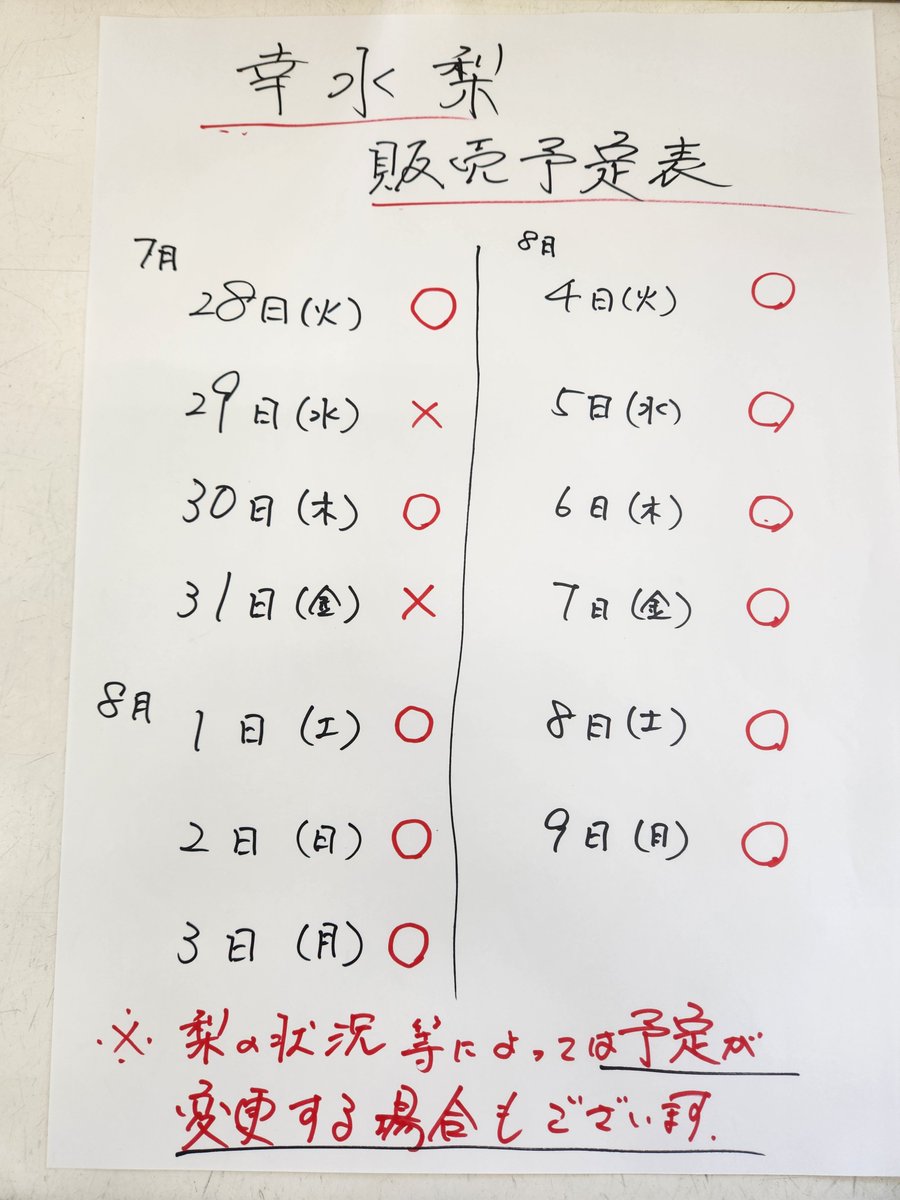 幸水梨
販売予定表
7月
28日(火) ○
29日(水) ×
30日(木) ○
31日(金) ×
8月
1日(土) ○
2日(日) ○
3日(月) ○
8月
4日(火) ○
5日(水) ○
6日(木) ○
7日(金) ○
8日(土) ○
9日(月) ○
※ 梨の状況等によっては予定が
変更する場合もございます.